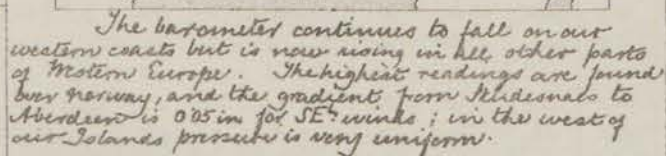 The barometer continues to fall on our
western coasts but is now rising in all other parts
of Western Europe. The highest readings are found
over Norway, and the gradient from Skudesnaes to
Aberdeen is 0.05 in for SEly winds; in the west of
our Islands pressure is very uniform.